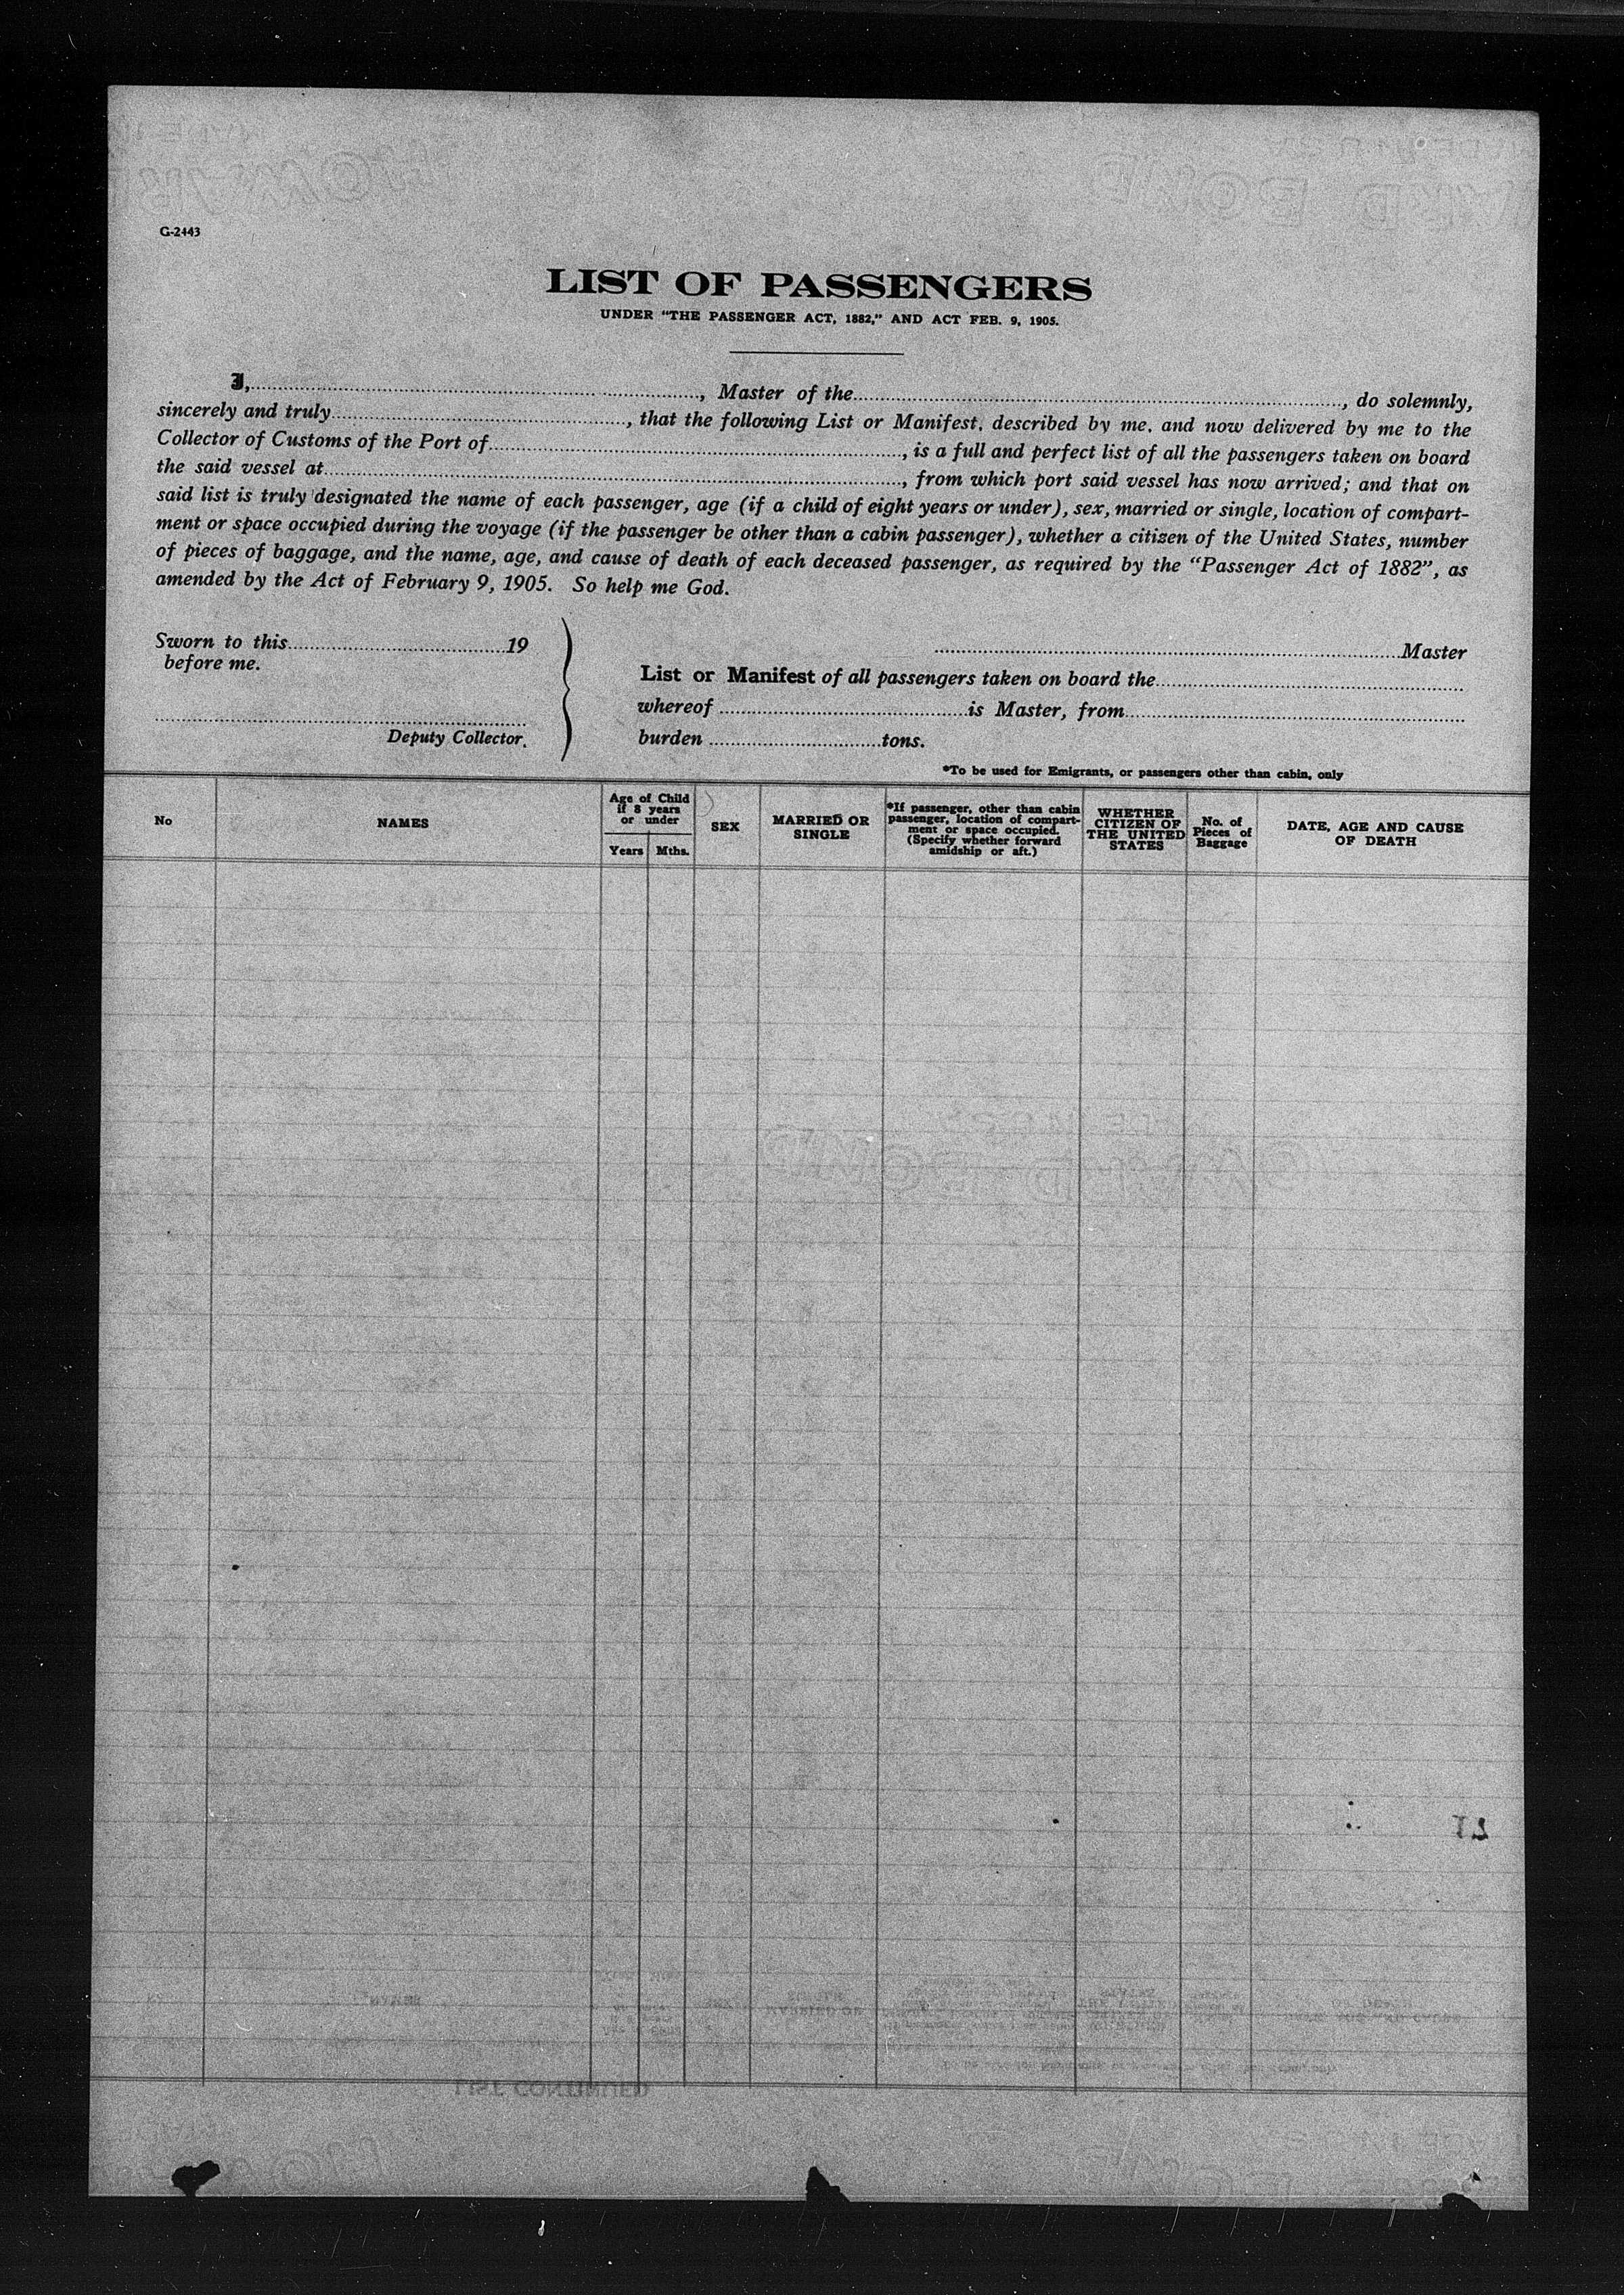 G-2443
LIST OF PASSENGERS
UNDER "THE PASSENGER ACT, 1882," AND ACT FEB. 9, 1905.
I,........, Master of the........, do solemnly,
sincerely and truly........, that the following List or Manifest, described by me, and now delivered by me to the
Collector of Customs of the Port of........, is a full and perfect list of all the passengers taken on board
the said vessel at........, from which port said vessel has now arrived; and that on
said list is truly designated the name of each passenger, age (if a child of eight years or under), sex, married or single, location of compart-
ment or space occupied during the voyage (if the passenger be other than a cabin passenger), whether a citizen of the United States, number
of pieces of baggage, and the name, age, and cause of death of each deceased passenger, as required by the "Passenger Act of 1882", as
amended by the Act of February 9, 1905. So help me God.
Sworn to this........19
before me.
Deputy Collector.
........Master
List or Manifest of all passengers taken on board the........
whereof ........is Master, from........
burden ........tons.
*To be used for Emigrants, or passengers other than cabin, only
No
NAMES
Age of Child
if 8 years
or under
Years Mths.
SEX
MARRIED OR
SINGLE
*If passenger, other than cabin
passenger, location of compart-
ment or space occupied.
(Specify whether forward
amidship or aft.)
WHETHER
CITIZEN OF
THE UNITED
STATES
No. of
Pieces of
Baggage
DATE, AGE AND CAUSE
OF DEATH
LIST CONTINUED